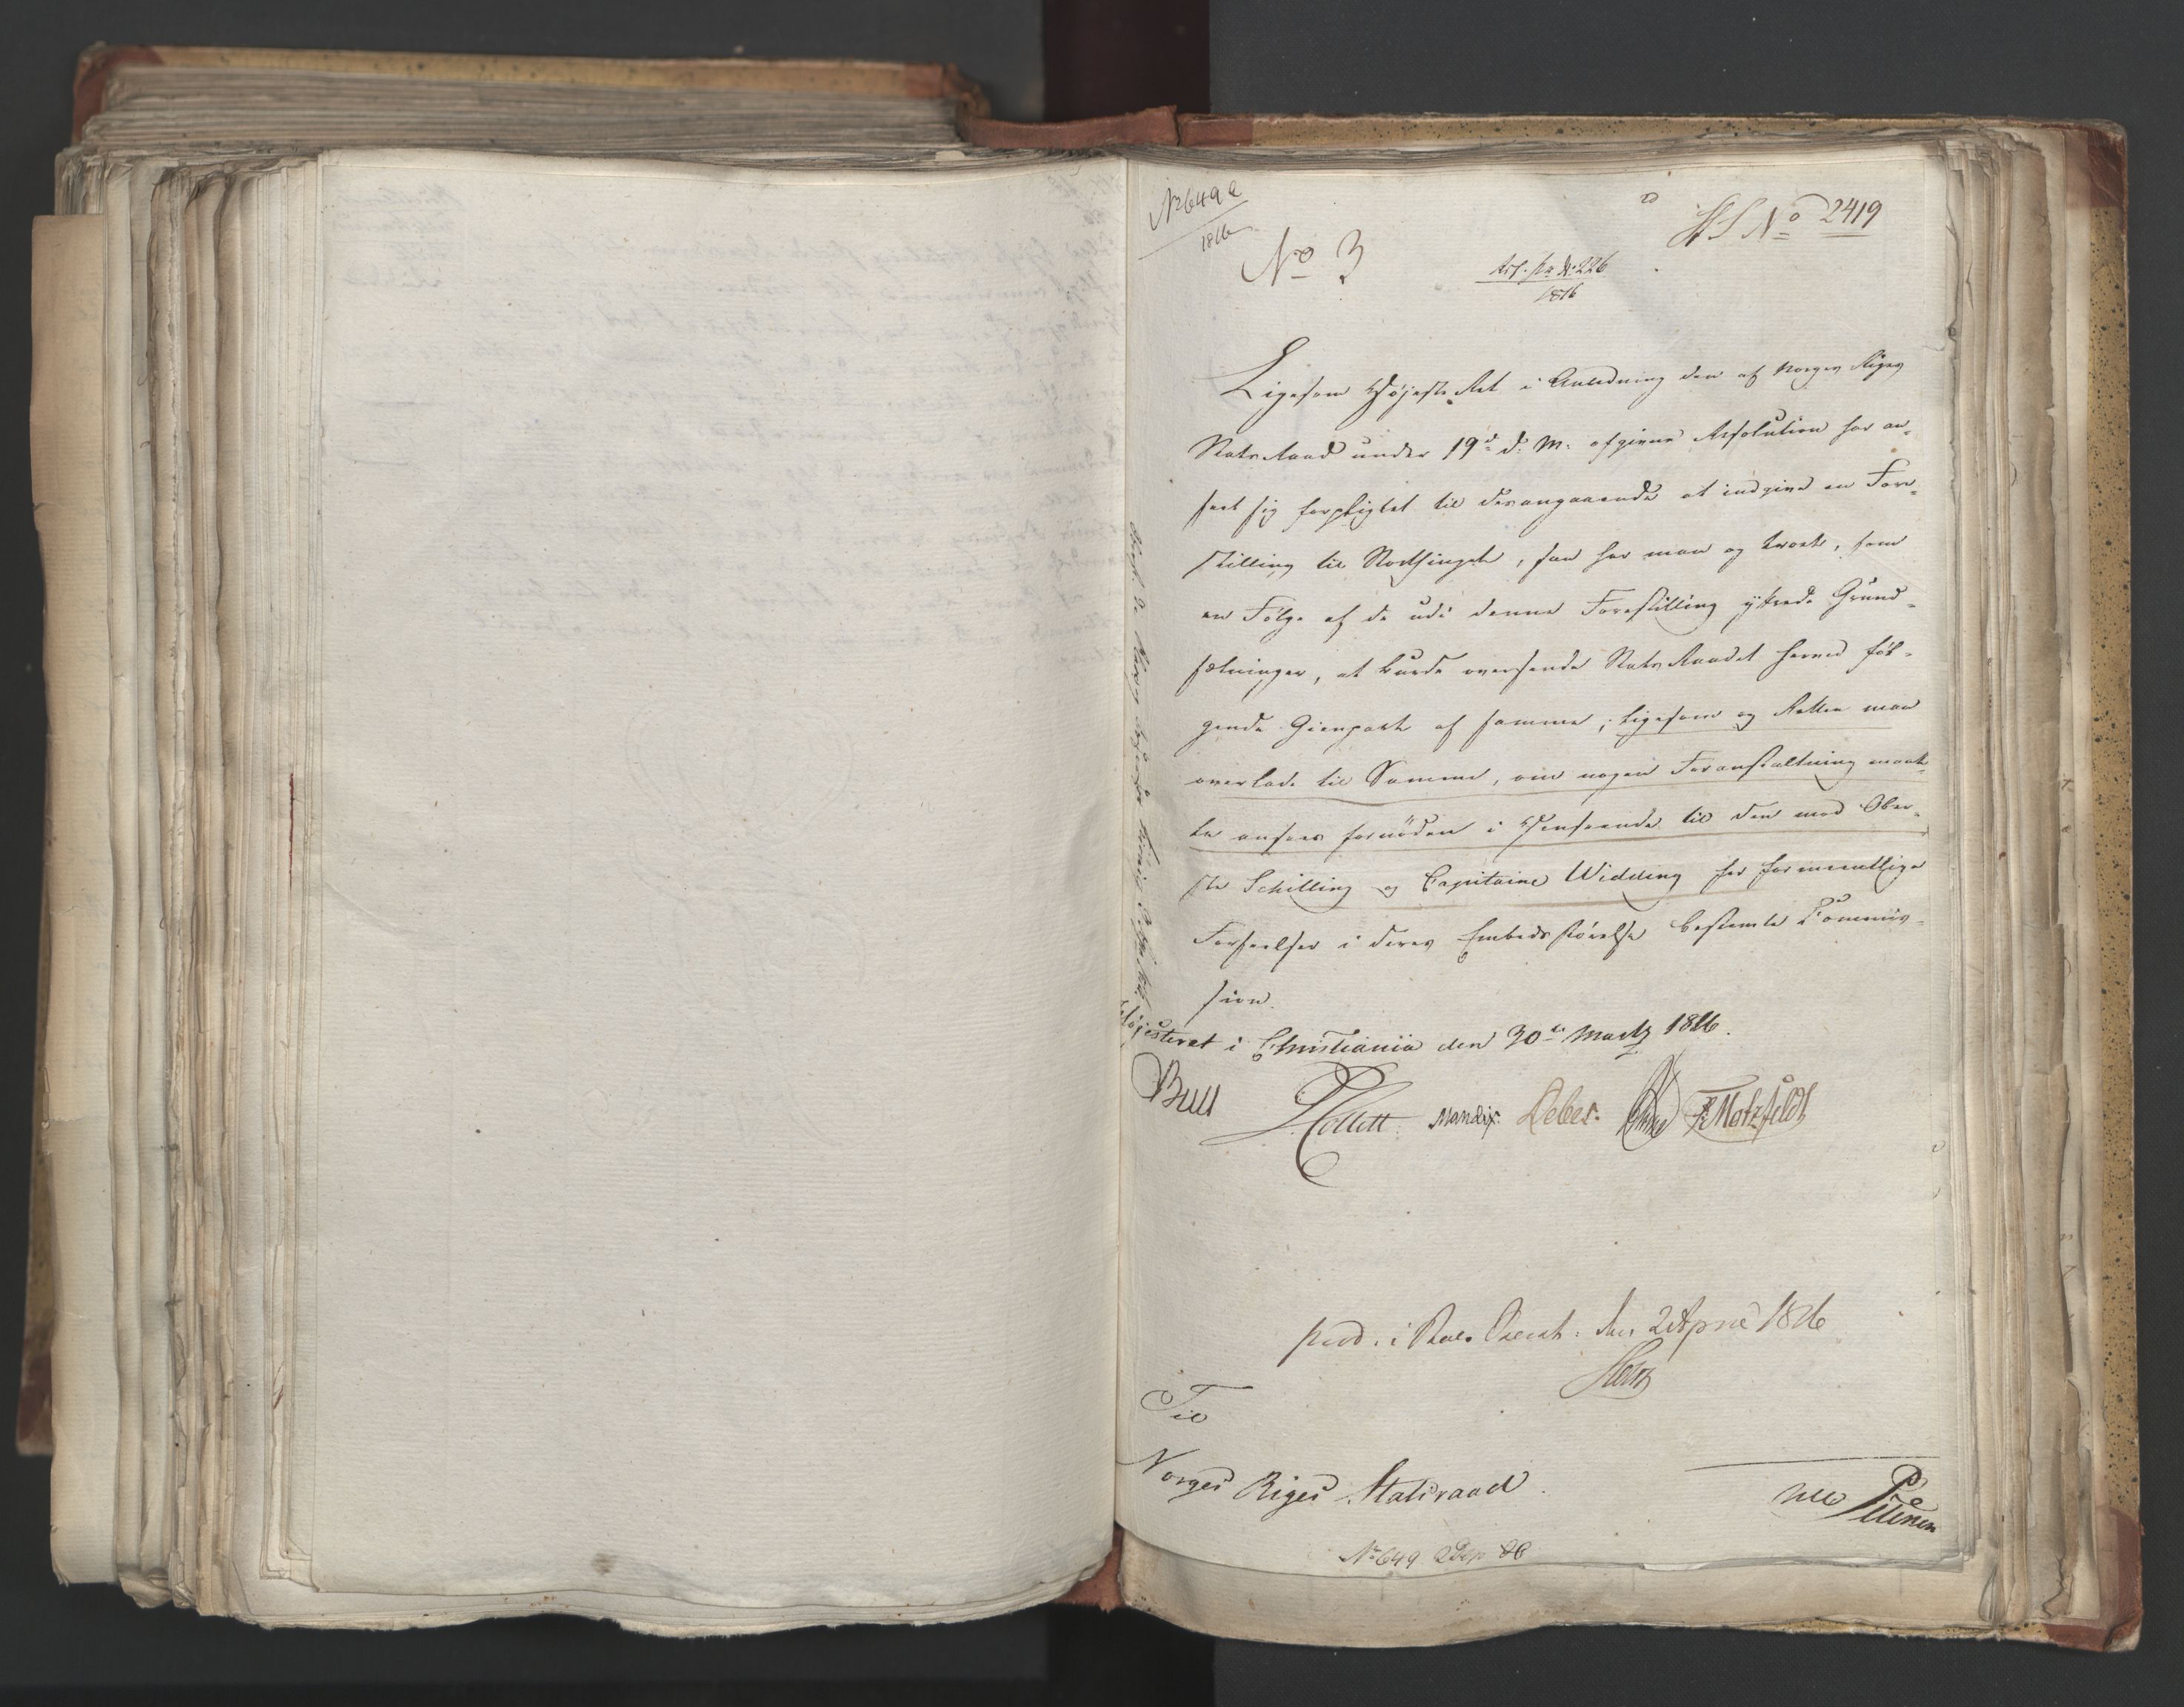 No 649 a
1816
No 3
HS No 2419
Ref. Pr. No 226
1816
Ligesom Højeste Ret i Anledning den af Norges Riges
Stats Raad under 19d d: M: afgivne Resolution har an-
seet sig forpligtet til desangaaende at indgive en Fore-
stilling til Storthinget, saa har man og troet, som
en Følge af de udi denne Forestilling yttrede Grund-
sætninger, at burde oversende Stats Raadet hermed føl-
gende Gienpart af samme; ligesom og Retten maa
overlade til Samme, om nogen Foranstaltning maat-
te ansees fornøden i Henseende til den mod Ober-
ste Schilling og Capitaine Widding for formeentlige
Forseelser i deres Embedsførelse bestemte Commis-
sion.
Højesteret i Christiania den 30te Martz 1816.
Bull Collett Mandix. Debes. Motzfeldt
prod. i den 2 April 1816
Til
Norges Riges Statsraad.
No 649